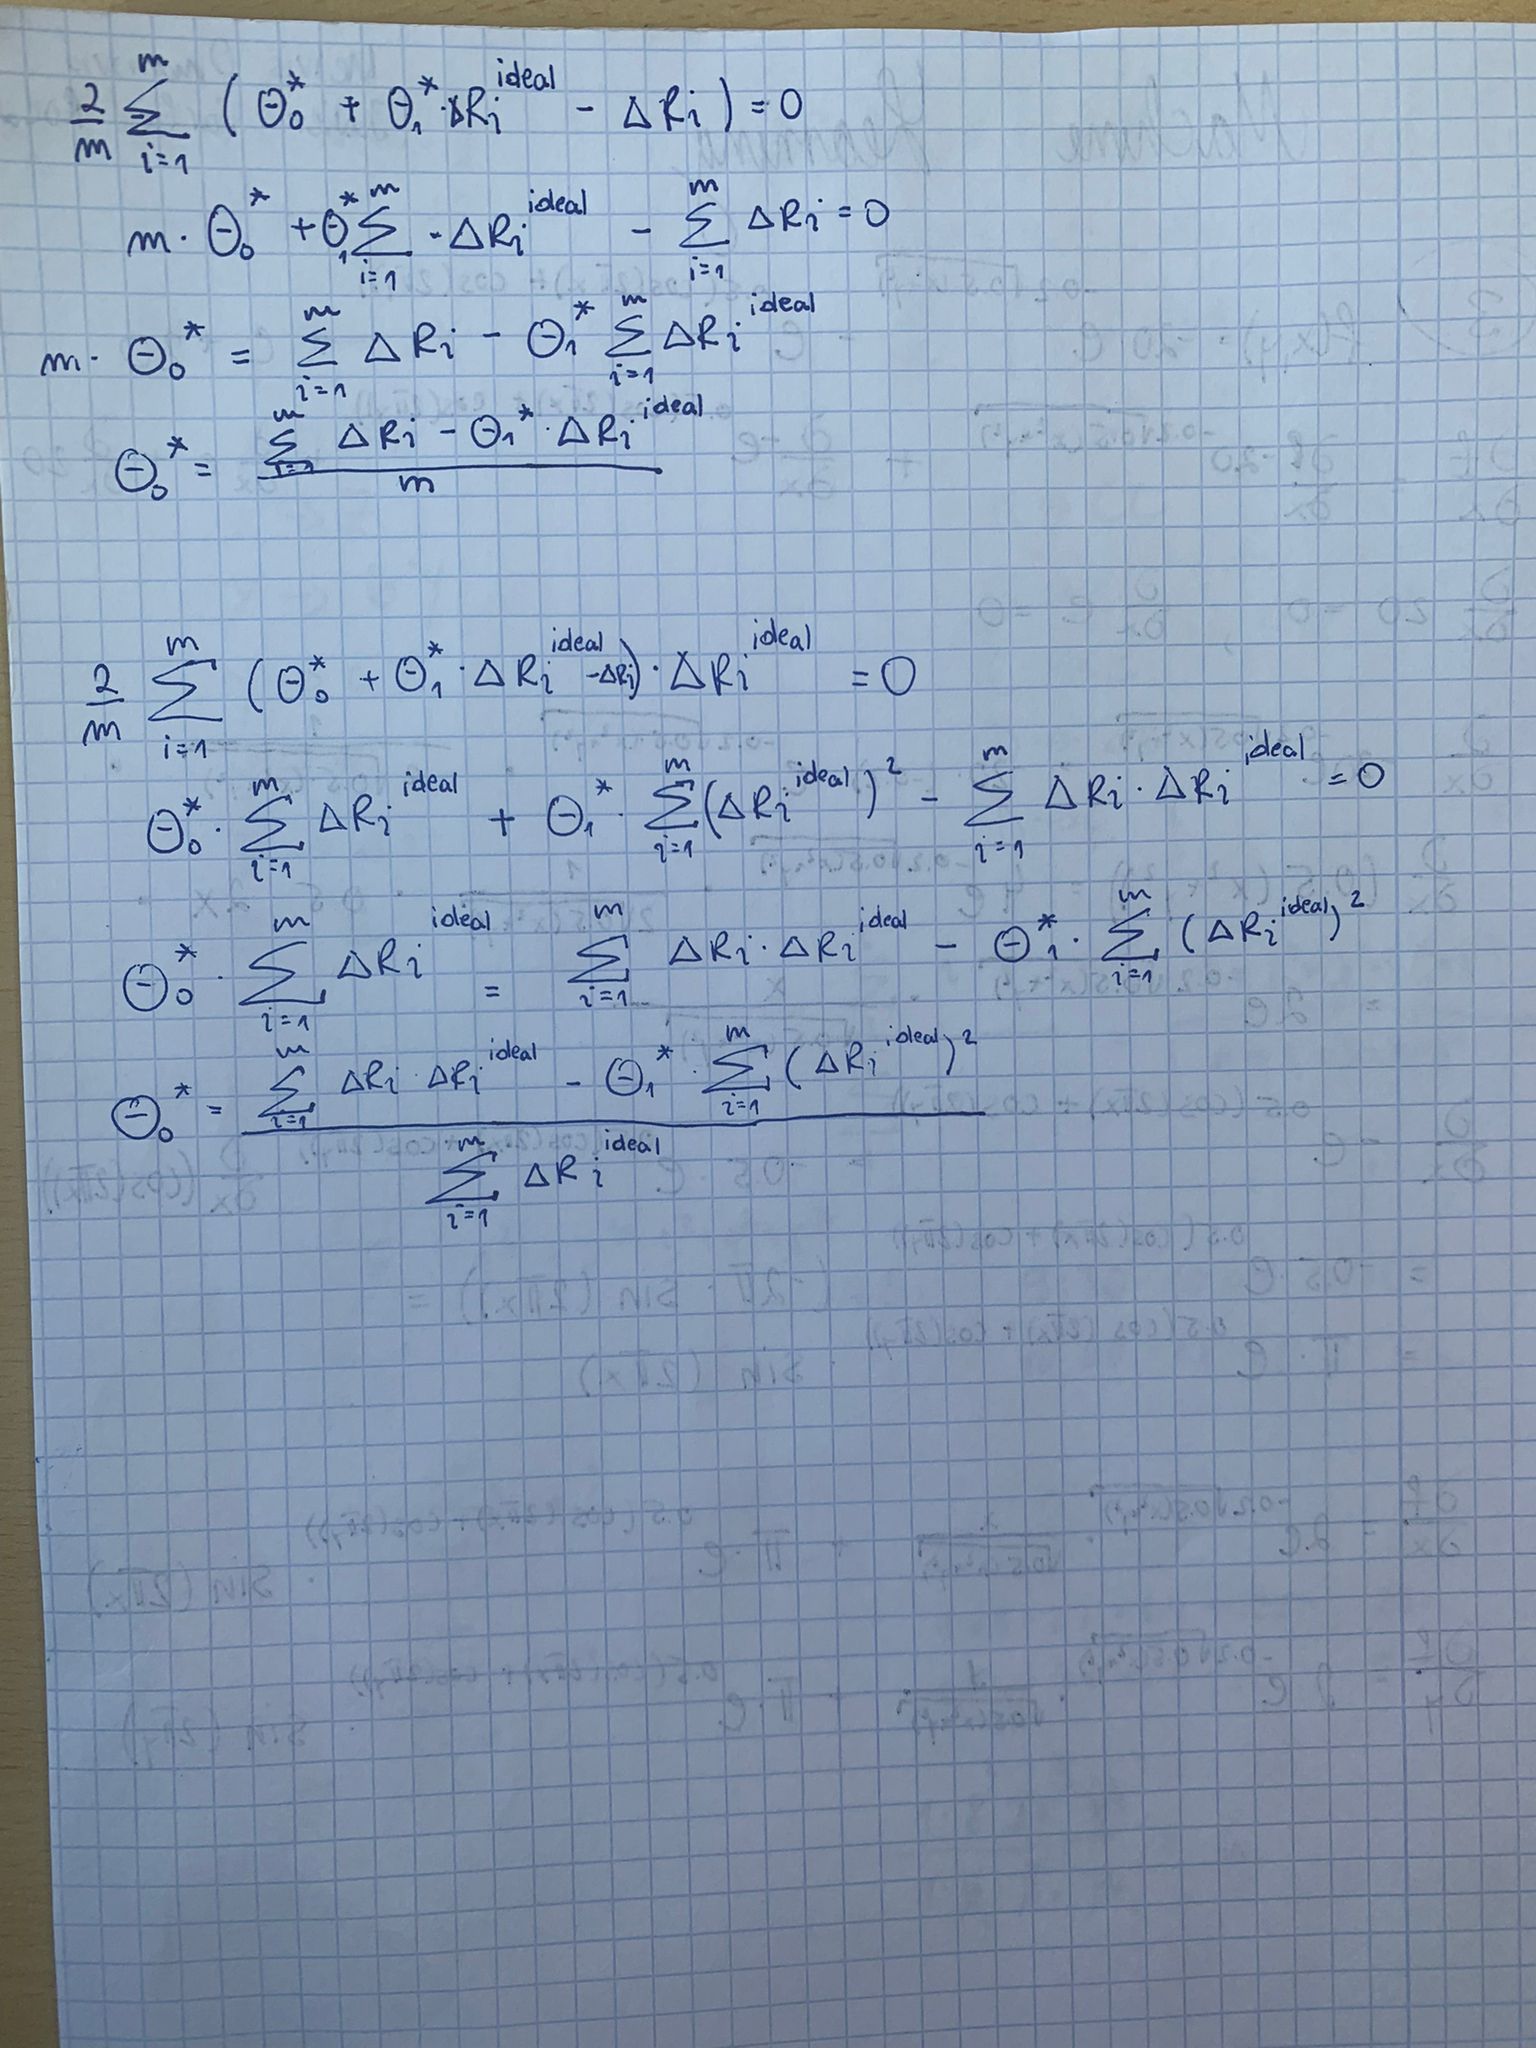 2/m ∑_{i=1}^{m} (Θ₀* + Θ₁* · ΔRᵢ^{ideal} − ΔRᵢ) = 0
m · Θ₀* + Θ₁* ∑_{i=1}^{m} · ΔRᵢ^{ideal} − ∑_{i=1}^{m} ΔRᵢ = 0
m · Θ₀* = ∑_{i=1}^{m} ΔRᵢ − Θ₁* ∑_{i=1}^{m} ΔRᵢ^{ideal}
Θ₀* = (∑_{i=1}^{m} ΔRᵢ − Θ₁* · ΔRᵢ^{ideal}) / m
2/m ∑_{i=1}^{m} (Θ₀* + Θ₁* · ΔRᵢ^{ideal} − ΔRᵢ) · ΔRᵢ^{ideal} = 0
Θ₀* · ∑_{i=1}^{m} ΔRᵢ^{ideal} + Θ₁* · ∑_{i=1}^{m} (ΔRᵢ^{ideal})² − ∑_{i=1}^{m} ΔRᵢ · ΔRᵢ^{ideal} = 0
Θ₀* · ∑_{i=1}^{m} ΔRᵢ^{ideal} = ∑_{i=1}^{m} ΔRᵢ · ΔRᵢ^{ideal} − Θ₁* · ∑_{i=1}^{m} (ΔRᵢ^{ideal})²
Θ₀* = (∑_{i=1}^{m} ΔRᵢ · ΔRᵢ^{ideal} − Θ₁* · ∑_{i=1}^{m} (ΔRᵢ^{ideal})²) / ∑_{i=1}^{m} ΔRᵢ^{ideal}